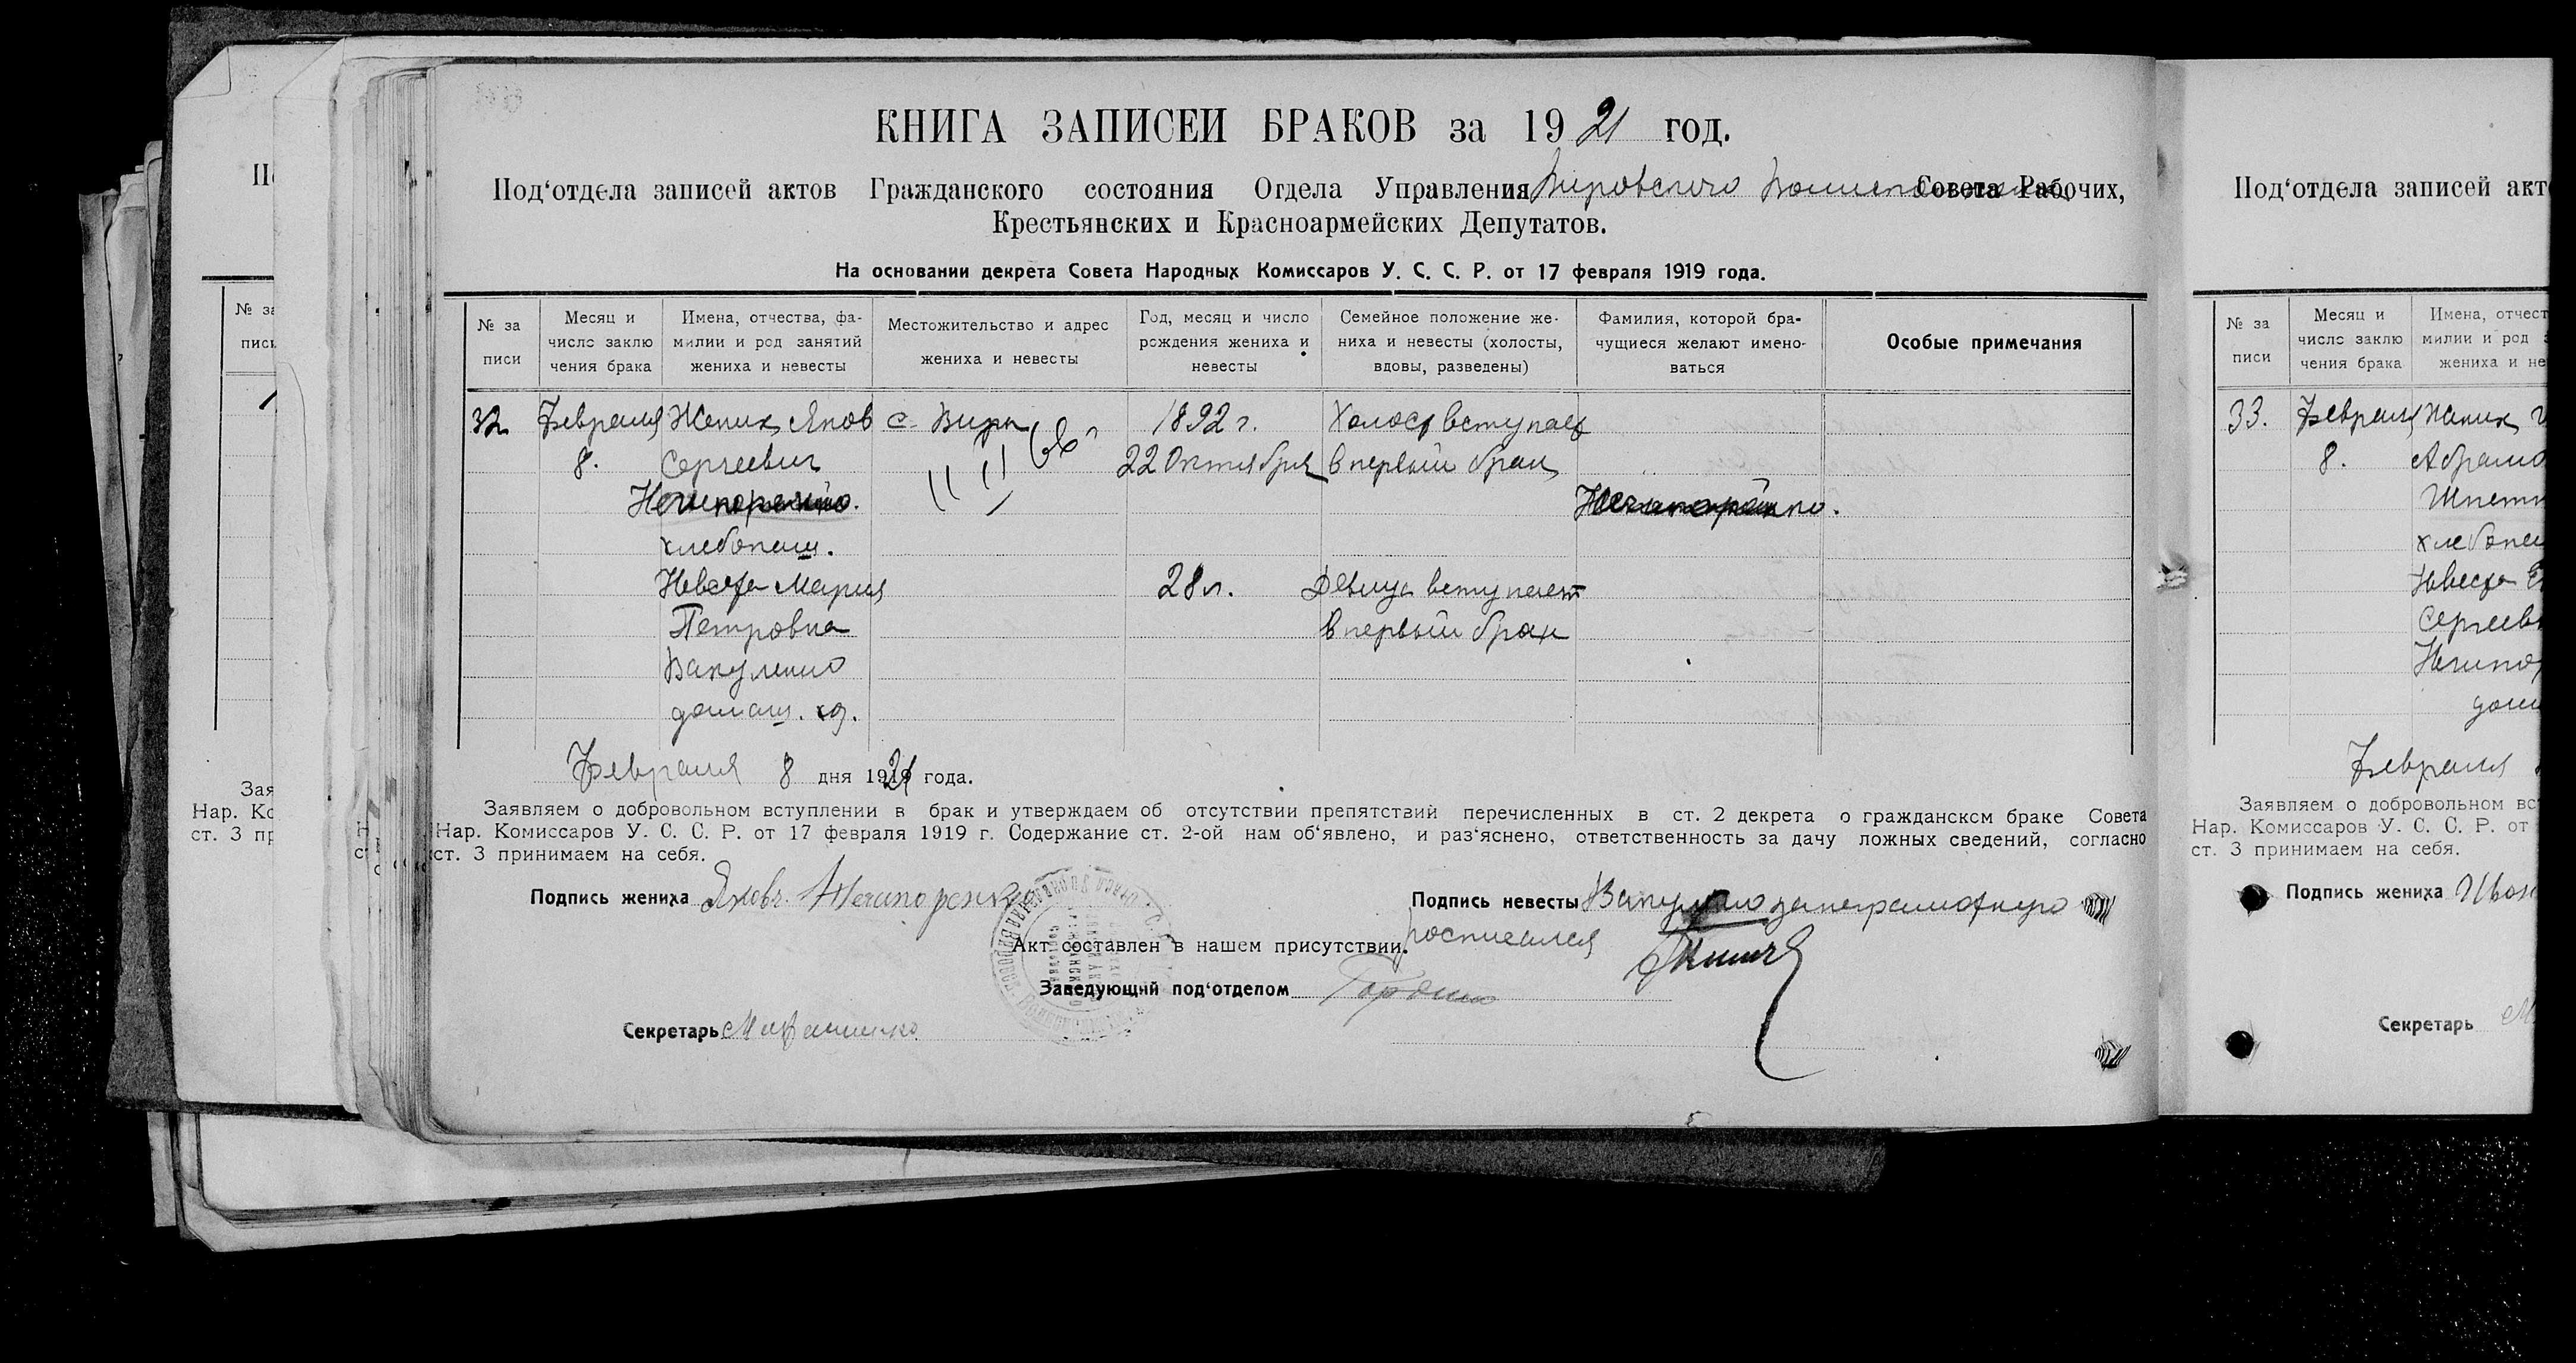 КНИГА ЗАПИСЕЙ БРАКОВ за 1921 год.
Под‘отдела записей актов Гражданского состояния Отдела Управления Вировского Совета Рабочих,
Крестьянских и Красноармейских Депутатов.
На основании декрета Совета Народных Комиссаров У. С. С. Р. от 17 февраля 1919 года.
№ за писи
Месяц и число заклю чения брака
Имена, отчества, фа- милии и род занятий жениха и невесты
Местожительство и адрес жениха и невесты
Год, месяц и число рождения жениха и невесты
Семейное положение же- ниха и невесты (холосты, вдовы, разведены)
Фамилия, которой бра- чущиеся желают имено- ваться
Особые примечания
32 Февраля Жених Яков с. Виры 1892 г. Холост вступает
8. Сергеевич 22 Октября в первый брак
Нечипоренко. Нечипоренко.
хлебопаш.
Невеста Мария 28 л. Девица вступает
Петровна в первый брак
Вакуленко
домаш. хоз.
Февраля 8 дня 1921 года.
Заявляем о добровольном вступлении в брак и утверждаем об отсутствии препятствий перечисленных в ст. 2 декрета о гражданскєм браке Совета
Нар. Комиссаров У. С. С. Р. от 17 февраля 1919 г. Содержание ст. 2-ой нам об‘явлено, и раз‘яснено, ответственность за дачу ложных сведений, согласно
ст. 3 принимаем на себя.
Подпись жениха Яковъ Нечипоренко
Подпись невесты Вакуленко за неграмотную
росписался
Акт составлен в нашем присутствии.
Заведующий под‘отделом
Секретарь
Под‘отдела записей акт
№ за писи
Месяц и число заклю чения брака
Имена, отчест милии и род жениха и не
33. Февраля Жених
8. Абрамо
Шпетн
хлебопаш
Невеста
Сергеевн
Нечипор
дома
Февраля
Заявляем о добровольном вс
Нар. Комиссаров У. С. С. Р. от
ст. 3 принимаем на себя.
Подпись жениха Иван
Секретарь
№ за
писи
Зая
Нар. Ко
ст. 3 пр